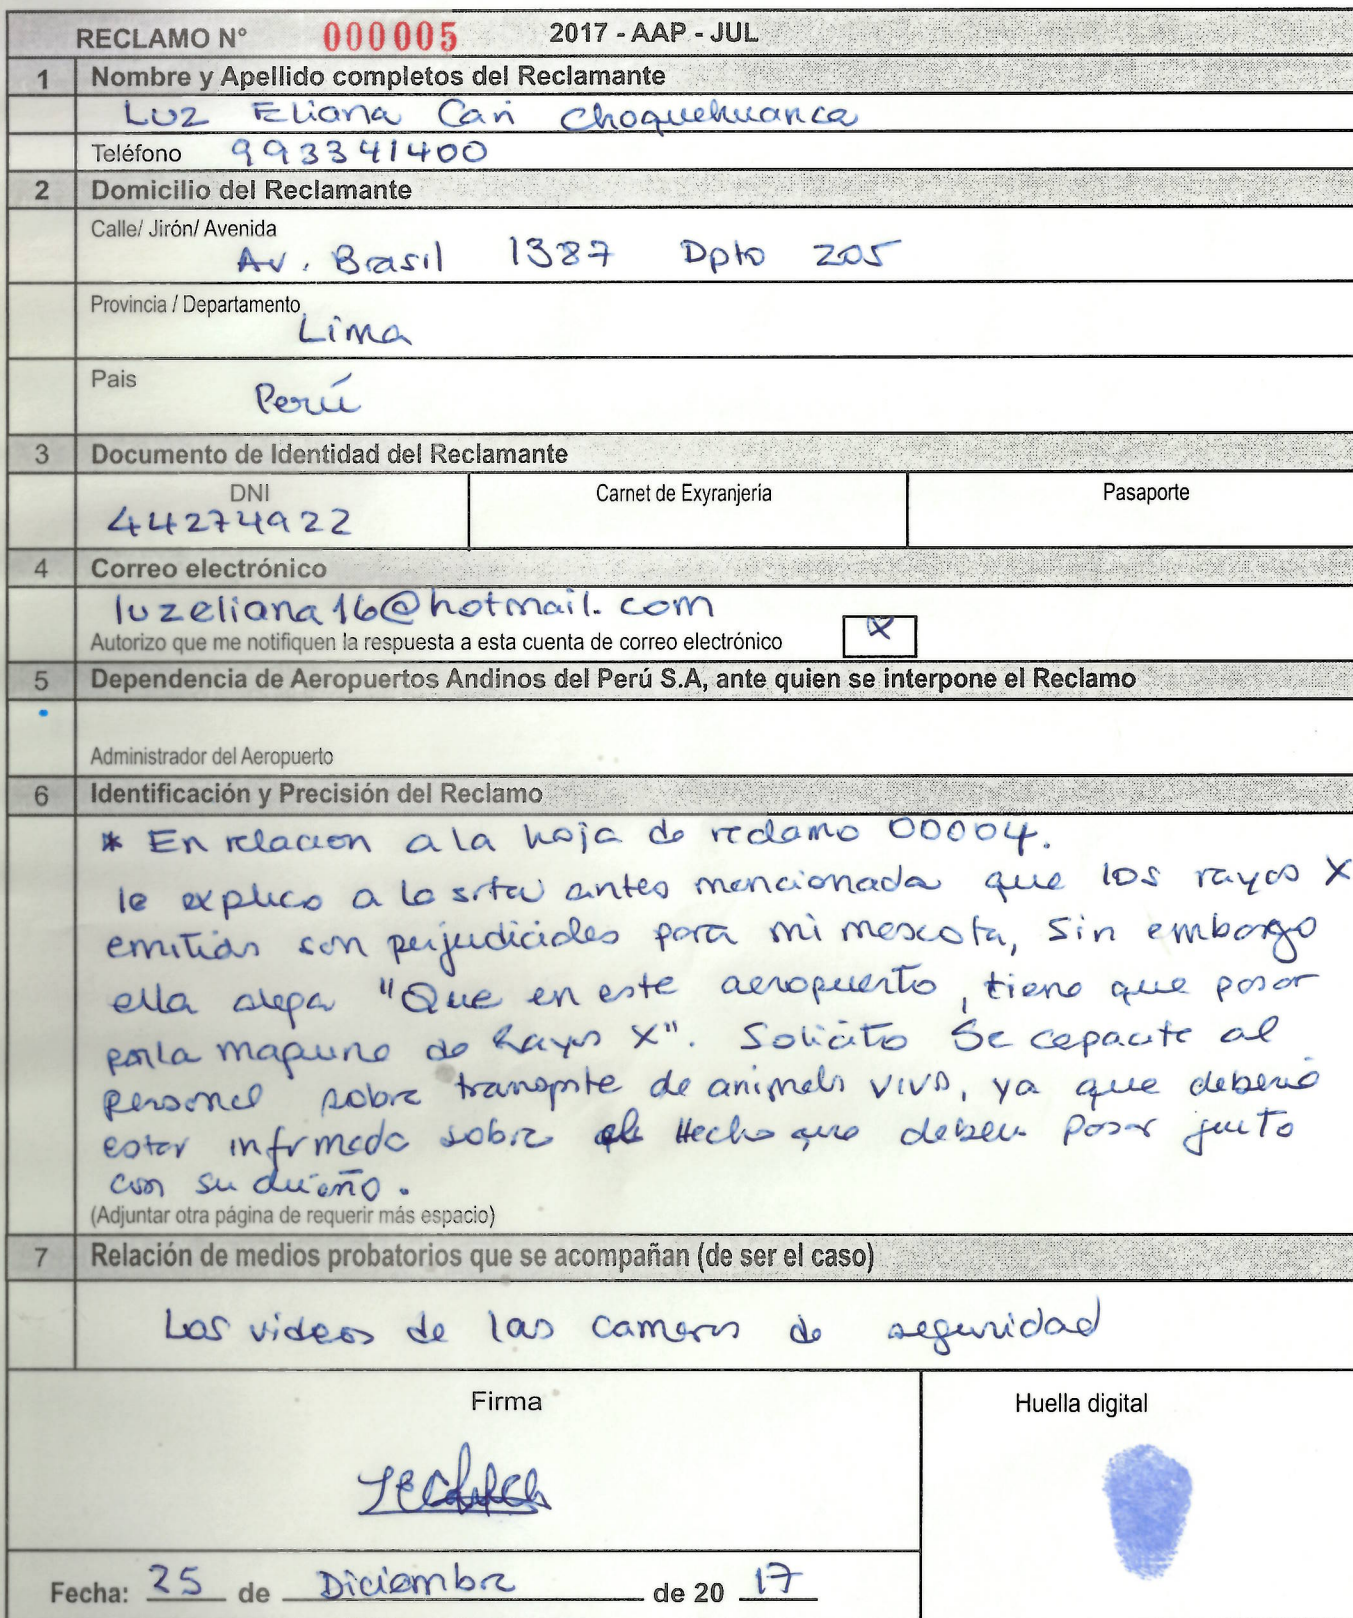 RECLAMO N° 000005 2017 - AAP - JUL
1 Nombre y Apellido completos del Reclamante
Luz Eliana Cari Choquehuanca
Teléfono 993341400
2 Domicilio del Reclamante
Calle/ Jirón/ Avenida
Av. Brasil 1387 Dpto 205
Provincia / Departamento
Lima
Pais
Perú
3 Documento de Identidad del Reclamante
DNI Carnet de Exyranjería Pasaporte
44274922
4 Correo electrónico
luzeliana16@hotmail.com
Autorizo que me notifiquen la respuesta a esta cuenta de correo electrónico X
5 Dependencia de Aeropuertos Andinos del Perú S.A, ante quien se interpone el Reclamo
Administrador del Aeropuerto
6 Identificación y Precisión del Reclamo
* En relacion a la hoja de reclamo 00004.
le explico a la srta antes mencionada que los rayos X
emitidos son perjudiciales para mi mascota, Sin embargo
ella alega "Que en este aeropuerto, tiene que pasar
por la maquina de Rayos X". Solicito Se capacite al
personal sobre transporte de animales vivos, ya que deberia
estar informado sobre el Hecho que deben pasar junto
con su dueño.
(Adjuntar otra página de requerir más espacio)
7 Relación de medios probatorios que se acompañan (de ser el caso)
Los videos de las camaras de seguridad
Firma Huella digital
Fecha: 25 de Diciembre de 20 17